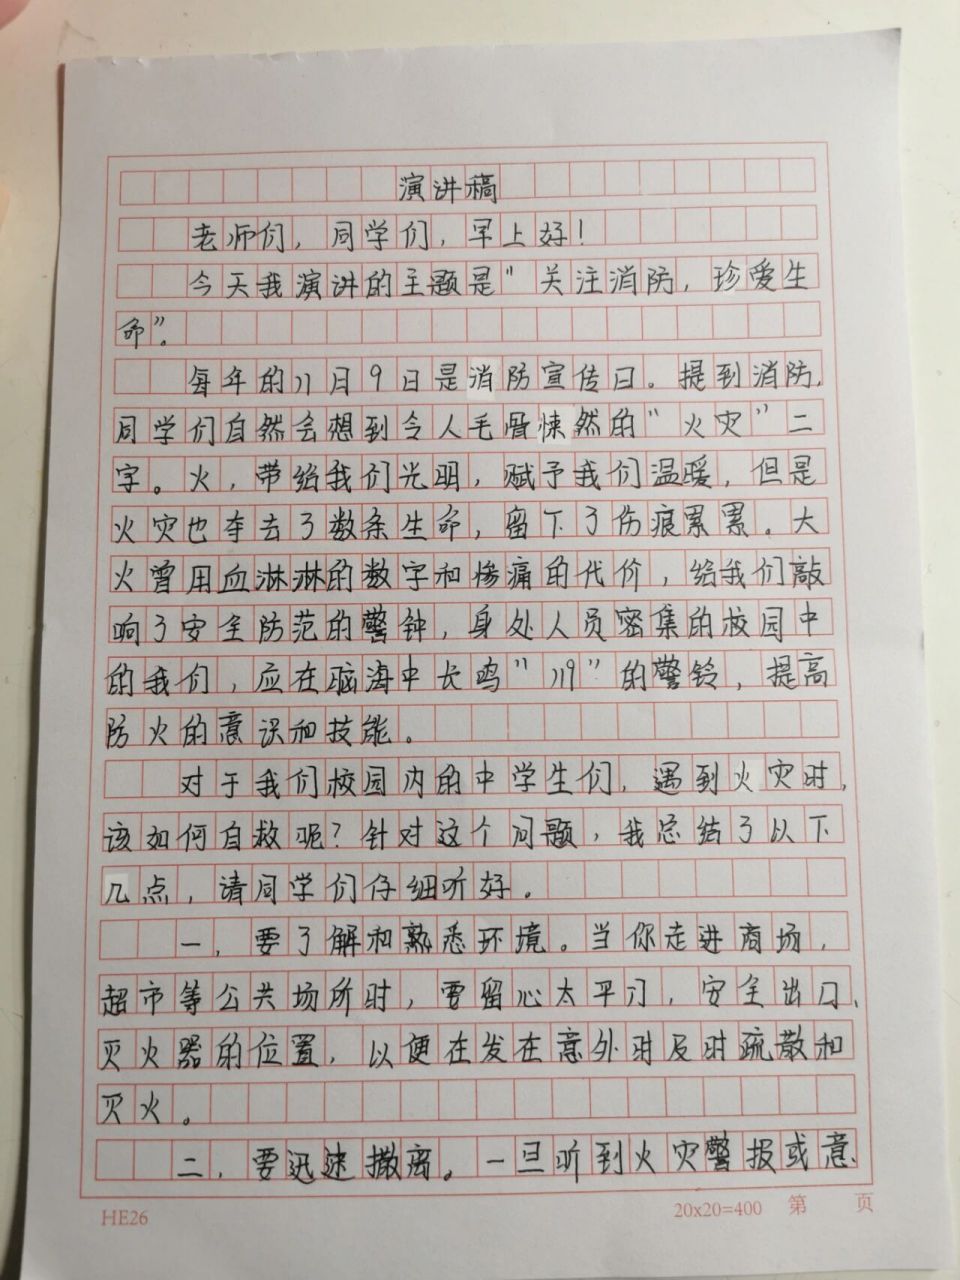 演讲稿
老师们，同学们，早上好！
今天我演讲的主题是"关注消防，珍爱生
命"。
每年的11月9日是消防宣传日。提到消防，
同学们自然会想到令人毛骨悚然的"火灾"二
字。火，带给我们光明，赋予我们温暖，但是
火灾也夺去了数条生命，留下了伤痕累累。大
火曾用血淋淋的数字和惨痛的代价，给我们敲
响了安全防范的警钟，身处人员密集的校园中
的我们，应在脑海中长鸣"119"的警铃，提高
防火的意识和技能。
对于我们校园内的中学生们，遇到火灾时，
该如何自救呢？针对这个问题，我总结了以下
几点，请同学们仔细听好。
一，要了解和熟悉环境。当你走进商场，
超市等公共场所时，要留心太平门，安全出口、
灭火器的位置，以便在发在意外时及时疏散和
灭火。
二，要迅速撤离。一旦听到火灾警报或意
HE26
20x20=400 第 页